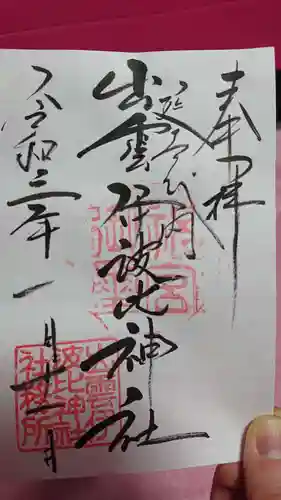 奉拝
延喜式内
出雲伊波比神社
令和三年一月
出雲伊
波比神社
社務所